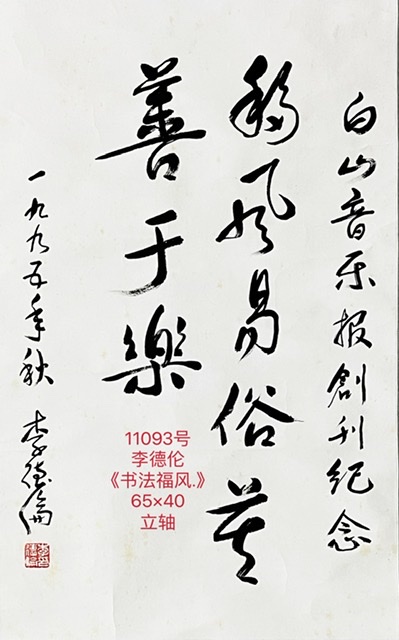 白山音乐报創刊纪念
移风易俗莫
善于樂
一九九五年秋 李德倫
11093号
李德伦
《书法福风.》
65×40
立轴